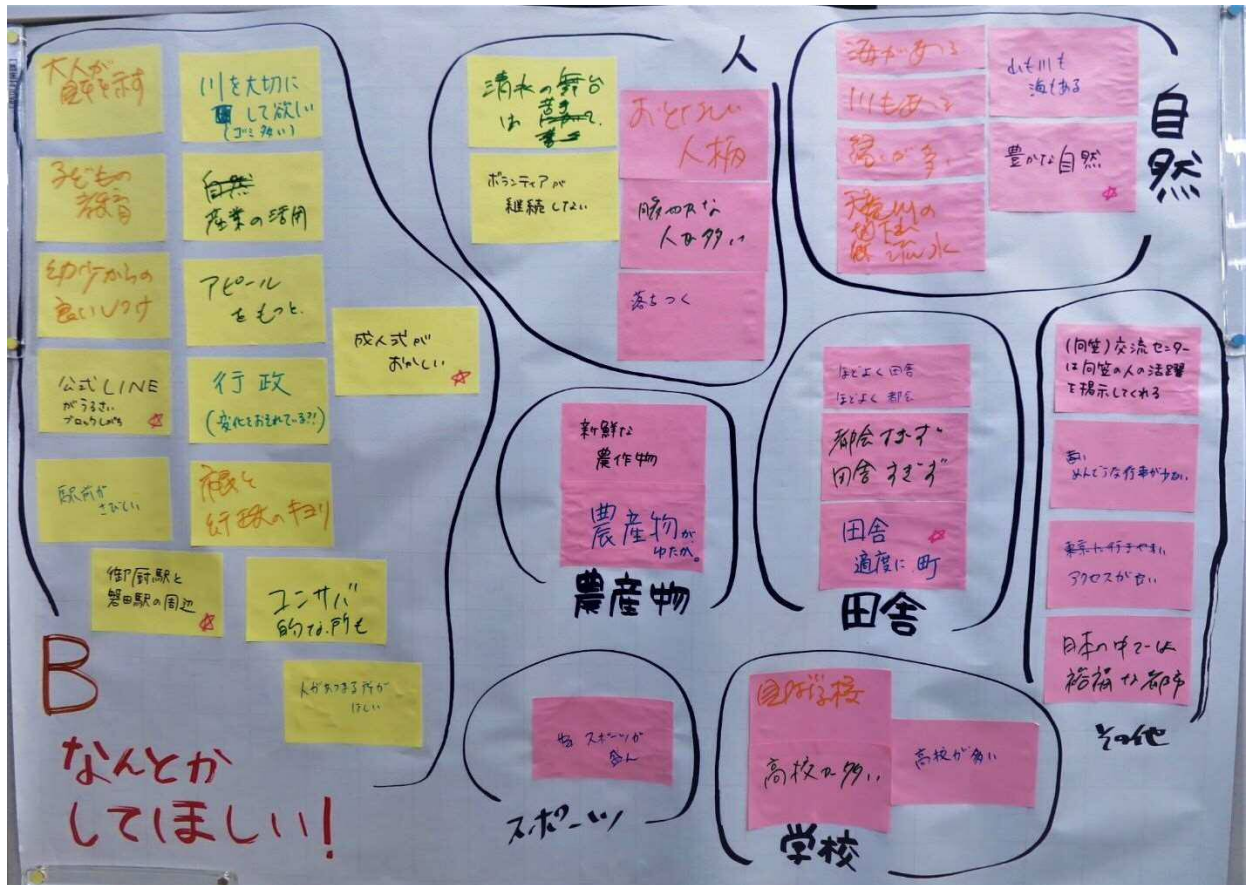 大人が
見本を示す
川を大切に
して欲しい
(ゴミ多い)
子どもの
教育
自然
産業の活用
幼少からの
良いしつけ
アピール
をもっと
成人式が
おかしい
公式LINE
がうるさい
ブロックしがち
行政
(変化をおそれている?!)
駅前が
さびしい
行政のキョリ
御厨駅と
磐田駅の周辺
コンサバ
的な所も
人があつまる所が
ほしい
B
なんとか
してほしい!
人
清水の舞台
は
ボランティアが
継続しない
人柄
人が多い
落ちつく
自然
海がある
川もある
緑が多い
天竜川の
山も川も
海もある
豊かな自然
農産物
新鮮な
農作物
農産物が
ゆたか。
田舎
ほどよく田舎
ほどよく都会
都会すぎず
田舎すぎず
田舎
適度に町
(向笠)交流センター
は向笠の人の活躍
を掲示してくれる
めんどうな行事が少ない
東京に行きやすい
アクセスがない
日本の中では
裕福な都市
その他
スポーツが
盛ん
スポーツ
高校が多い
高校が多い
学校